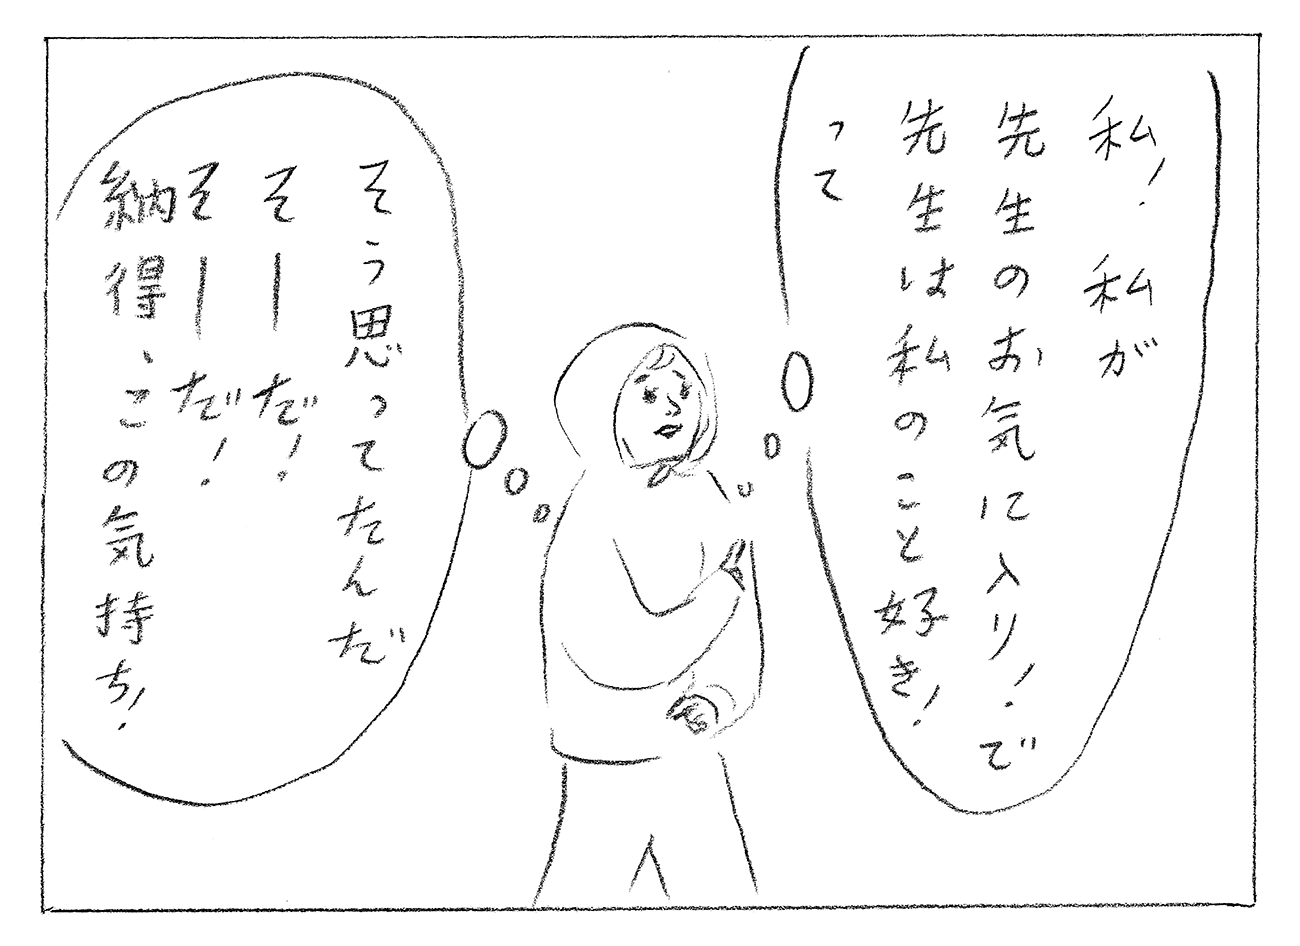 私！私が
先生のお気に入り！で
先生は私のこと好き！
って
そう思ってたんだ
そーだ！
そーだ！
納得、この気持ち！